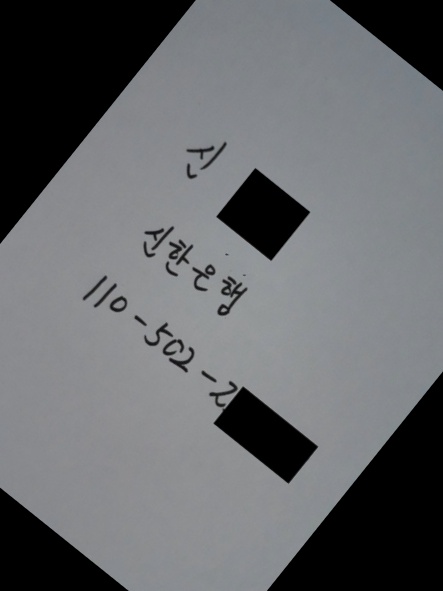 신
신한은행
110-502-2